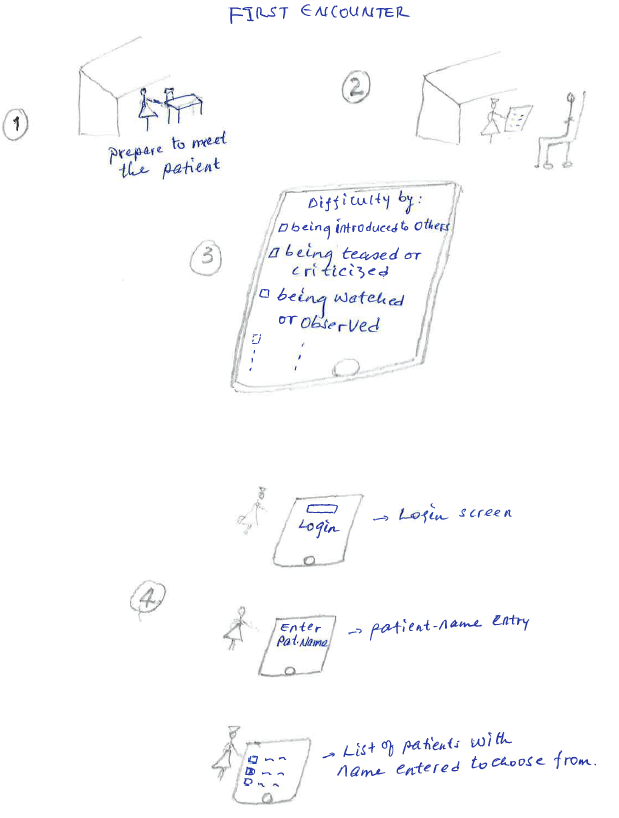 FIRST ENCOUNTER
1
prepare to meet
the patient
2
3
Difficulty by:
being introduced to others
being teased or
criticized
being watched
or observed
4
Login
→ Login screen
Enter
Pat.Name
→ patient-name entry
→ List of patients with
name entered to choose from.